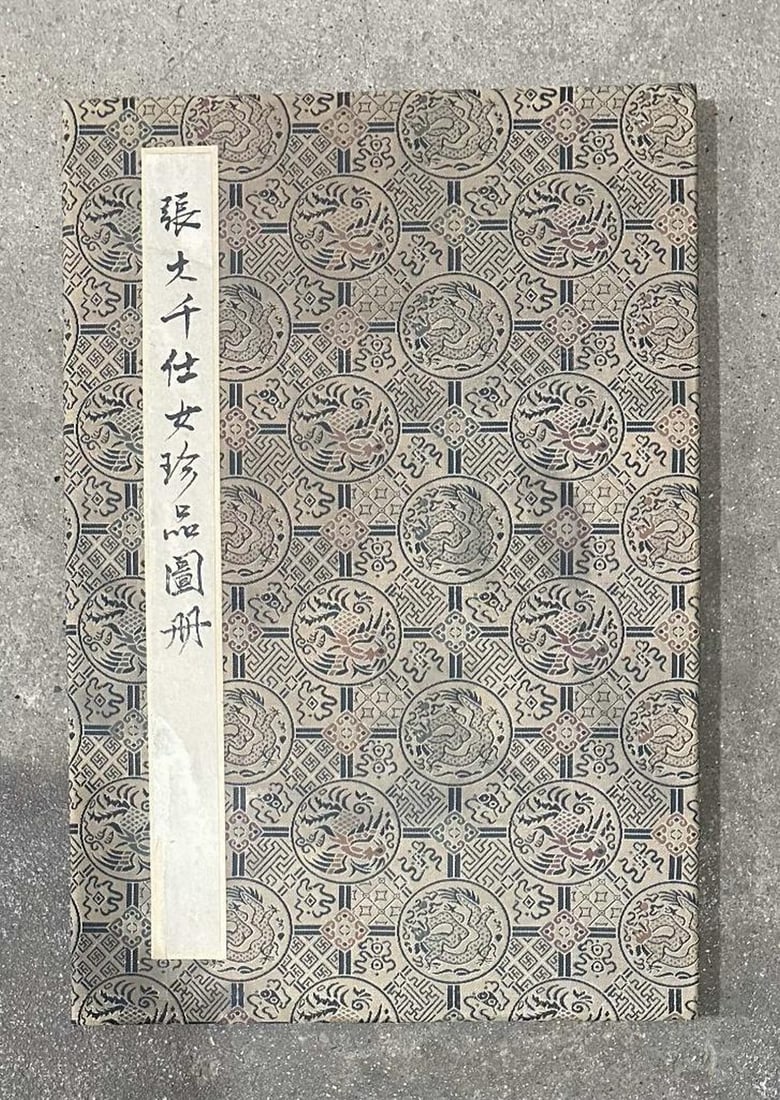 張大千仕女珍品圖册